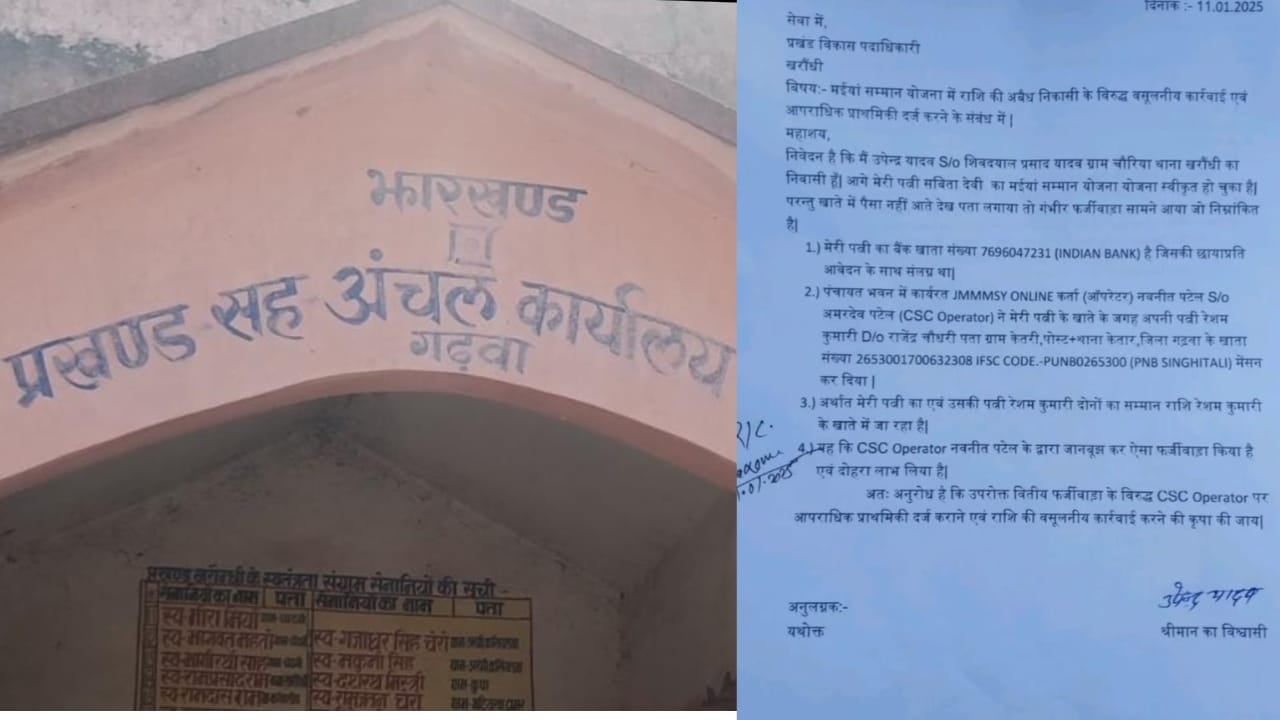 झारखण्ड
प्रखण्ड सह अंचल कार्यालय
गढ़वा
प्रखण्ड खरौन्धी के स्वतंत्रता संग्राम सेनानियों की सूची -
सेनानियों का नाम पता सेनानियों का नाम पता
स्व॰ मीरा मियाँ
स्व॰ भागवत महतो स्व॰ गजाधर सिंह चेरो
स्व॰ भागीरथी साह स्व॰ मकुनी सिंह
स्व॰ रामप्रसाद राम स्व॰ दशरथ मिस्त्री ग्राम-कूपा
स्व॰ रामदास राम
दिनांक :- 11.01.2025
सेवा में,
प्रखंड विकास पदाधिकारी
खरौंधी
विषय:- मईयां सम्मान योजना में राशि की अबैध निकासी के विरुद्ध वसूलनीय कार्रवाई एवं
आपराधिक प्राथमिकी दर्ज करने के संबंध में |
महाशय,
निवेदन है कि मैं उपेन्द्र यादव S/o शिवदयाल प्रसाद यादव ग्राम चौरिया थाना खरौंधी का
निवासी हूँ| आगे मेरी पत्नी सबिता देवी का मईयां सम्मान योजना योजना स्वीकृत हो चुका है|
परन्तु खाते में पैसा नहीं आते देख पता लगाया तो गंभीर फर्जीवाड़ा सामने आया जो निम्नांकित
है|
1.) मेरी पत्नी का बैंक खाता संख्या 7696047231 (INDIAN BANK) है जिसकी छायाप्रति
आवेदन के साथ संलग्न था|
2.) पंचायत भवन में कार्यरत JMMMSY ONLINE कर्ता (ऑपरेटर) नवनीत पटेल S/o
अमरदेव पटेल (CSC Operator) ने मेरी पत्नी के खाते के जगह अपनी पत्नी रेशम
कुमारी D/o राजेंद्र चौधरी पता ग्राम केतरी,पोस्ट+थाना केतार,जिला गढवा के खाता
संख्या 2653001700632308 IFSC CODE.-PUNB0265300 (PNB SINGHITALI) मेंसन
कर दिया |
3.) अर्थात मेरी पत्नी का एवं उसकी पत्नी रेशम कुमारी दोनों का सम्मान राशि रेशम कुमारी
के खाते में जा रहा है|
4.) यह कि CSC Operator नवनीत पटेल के द्वारा जानबूझ कर ऐसा फर्जीवाड़ा किया है
एवं दोहरा लाभ लिया है|
अतः अनुरोध है कि उपरोक्त वितीय फर्जीवाडा के विरुद्ध CSC Operator पर
आपराधिक प्राथमिकी दर्ज कराने एवं राशि की वसूलनीय कार्रवाई करने की कृपा की जाय|
उपेन्द्र यादव
अनुलग्नक:-
यथोक्त
श्रीमान का विश्वासी